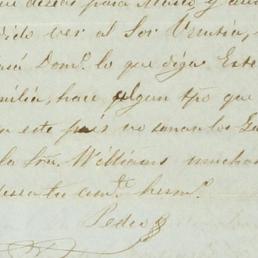 que deseas para Mario y
ver al Sor
Dom.º lo que diga Este
milia, hace algun tpo que
este país no sonan los
la Sra. Williams muchas
desea tu am.te herm.º
Pedro